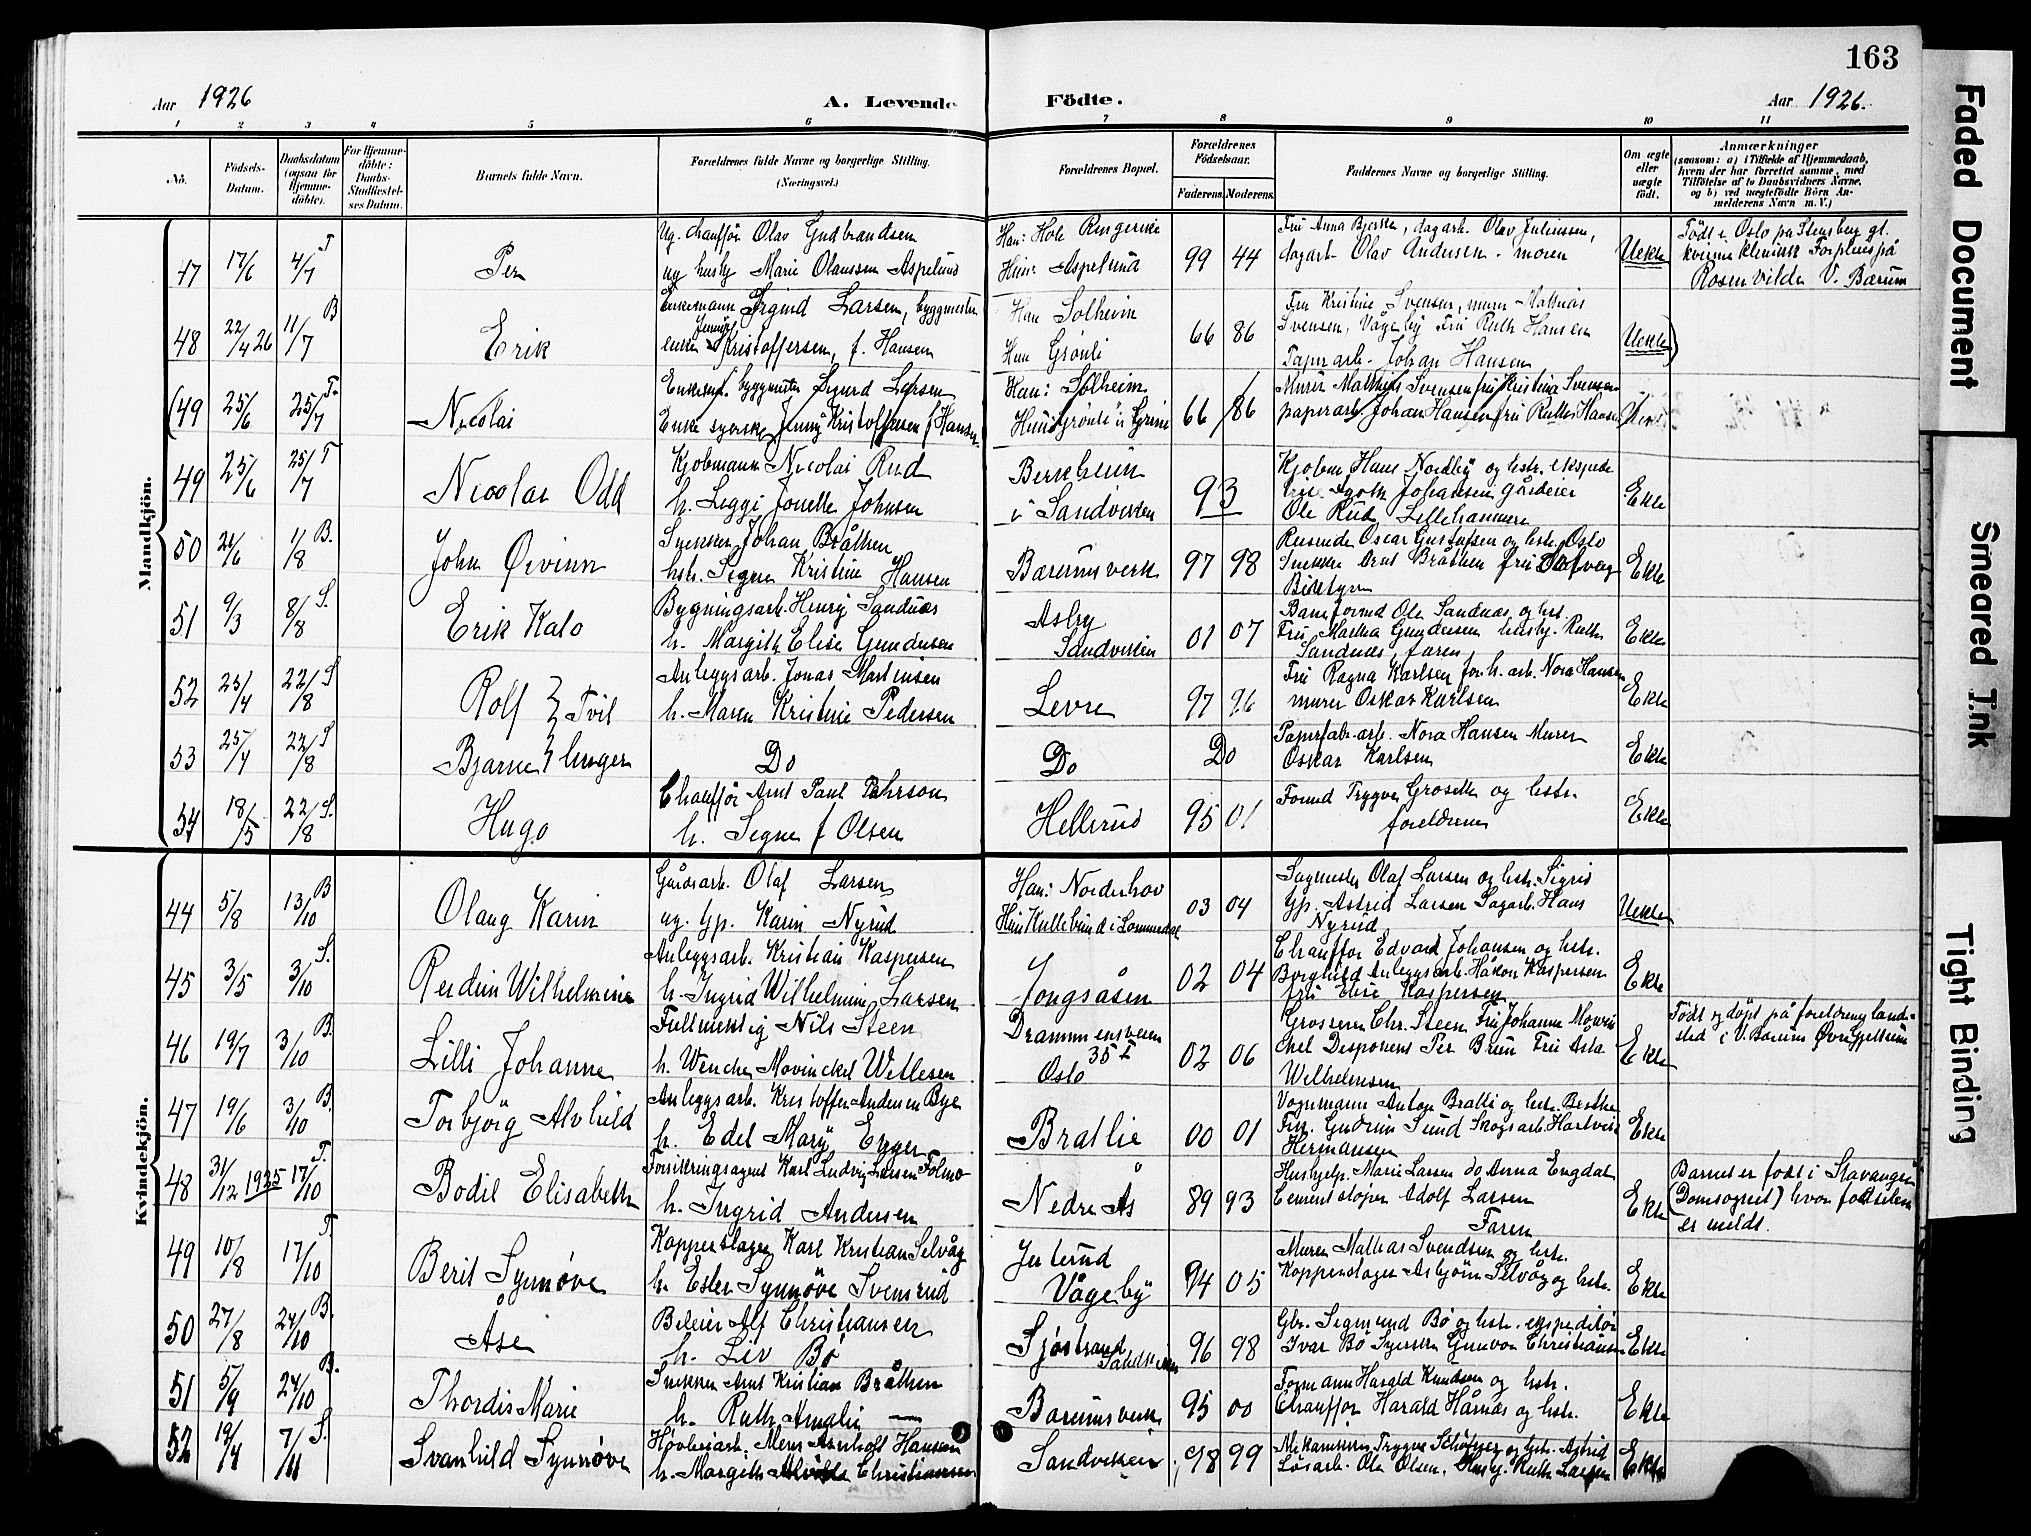 163
Aar 1926
A. Levende Födte.
Aar 1926.
1 2 3 4 5 6 7 8 9 10 11
No.
Födsels-Datum.
Daabsdatum (ogsaa for Hjemmedöbte).
For Hjemmedöbte: Daabs-Stadfæstelses Datum.
Barnets fulde Navn.
Forældrenes fulde Navne og borgerlige Stilling.
(Næringsvei.)
Forældrenes Bopæl.
Forældrenes Födselsaar.
Faderens. Moderens.
Faddernes Navne og borgerlige Stilling.
Om ægte eller uægte født.
Anmærkninger
(saasom: a) i Tilfælde af Hjemmedaab, hvem der har forrettet samme, med Tilföielse af to Daabsvidners Navne, og b) ved uegtefödte Börn Anmelderens Navn m. V.)
Mandkjön.
47 17/6 4/7 T
Per
Ug. chauffør Olav Gudbrandsen
ug husby Marie Olaussen Aspelund
Han: Hole Ringerike
Hun: Aspelund
99 44
Fru Anna Bjerke, dagarb. Olav Juliussen,
dagarb Olav Andersen. moren
Uekte
Født i Oslo på Stensberg gt.
kvinne klinikk Forpleies på
Rosenvilde V. Bærum
48 22/4 26 11/7 B
Erik
Enkemann Sigurd Larsen, byggmester
enke Jenny Kristoffersen, f. Hansen
Han Solheim
Hun Grönli
66 86
Fru Kristine Svensen, murer Mathias
Svensen, Vågeby Fru Ruth Hansen
Papirarb. Johan Hansen
Uekte)
(49 25/6 25/7 T.
Nicolai
Enkem. byggmester Sigurd Larsen
Enke syerske Jenny Kristoffersen f Hansen
Han: Solheim
Hun: Grönli i Grini
66 86
Murer Mathias Svensen fru Kristine Svensen
paperarb. Johan Hansen fru Ruth Hansen
49 25/6 25/7 T
Nicolai Odd
Kjøbmann Nicolai Rud
h. Leggi Jonette Johnsen
Berkheim
i Sandviken
93
Kjøbm Hans Nordby og hstr. ekspedi
Ole Rud Lillehammer
Ekte
50 21/6 1/8 B.
John Øivinn
Snekker Johan Bråthen
hstr. Signe Kristine Hansen
Bærumsverk
97 98
Reisende Oscar Gustafsen og hstr. Oslo
Snekker Arnt Bråthen fru
Ekte
51 9/3 8/8 S.
Erik Kato
Bygningsarb. Henry Sandnæs
h. Margith Elise Gundersen
Asby
Sandviken
01 07
Baneformd Ole Sandnæs og hst.
Fru Martha Gundersen husby. Ruth
Sandnæs, faren
Ekte
52 25/4 22/8 S
Rolf } Tvil
Anleggsarb. Jonas Martinsen
h. Maren Kristine Pedersen
Levre
97 96
Fru Ragna Karlsen for. h. arb. Nora Hansen
murer Oskar Karlsen
Ekte
53 25/4 22/8 S
Bjarne } linger
Do
Do
Do
Papirfab. arb. Nora Hansen Murer
Oskar Karlsen
Ekte
54 18/5 22/8 S.
Hugo
Chauffør Arnt Paul Pehrson
h. Signe f Olsen
Hellerud
95 01
Formd Trygve Groseth og hstr.
foreldrene
Ekte
Kvindekjön.
44 5/8 13/10 B
Olaug Karin
Gårdsarb. Olaf Larsen
ug. Gp. Karin Nyrud
Han: Norderhov
Hun Kullebund i Lommedal
03 04
Sagmester Olaf Larsen og hstr. Sigrid
Gp. Astrid Larsen Sagarb. Hans
Nyrud
Uekte
45 3/5 3/10 S.
Reidun Wilhelmine
Anleggsarb. Kristian Kaspersen
h. Ingrid Wilhelmine Larsen
Jongsåsen
02 04
Chauffør Edvard Johansen og hstr.
Borghild Anleggsarb. Håkon Kaspersen
fru Elise Kaspersen
Ekte
46 19/7 3/10 B.
Lilli Johanne
Fullmektig Nils Steen
h. Wenche Movinckel Willesen
Drammensveien
35 I
Oslo
02 06
Grosserer Chr. Steen Fru Johanne Mowin
ckel Disponent Per Bruu Fru Asta
Wilhelmsen
Ekte
Født og døpt på foreldrenes land-
sted i V. Bærum
47 19/6 3/10 B.
Torbjörg Alvhild
Anleggsarb. Kristoffer Andersen Bye
h. Edel Mary Egger
Bratlie
00 01
Vognmann Anton Bratli og hstr. Berthe
Fru. Gudrun Sund Skogsarb. Hartvig
Hermansen
Ekte
48 31/12 1925 17/10 T.
Bodil Elisabeth
Forsikringsagent Karl Ludvig Larsen Folmo
h. Ingrid Andersen
Nedre Ås
89 93
Hushjelp. Marie Larsen do Anna Engdal
Cementstøper Adolf Larsen
Faren
Ekte
Barnet er født i Stavanger
(Domsognet) hvor fødselen
er meldt.
49 10/8 17/10 T.
Berit Synnøve
Kopperslager Karl Kristian Selvåg
h. Ester Synnöve Svensrud
Vågeby
94 05
Murer Mathias Svendsen og hstr.
Kopperslager Asbjørn Selvåg og hstr.
Ekte
50 27/8 24/10 B.
Åse
Bileier Alf Christiansen
h. Liv Bö
Sjøstrand
Sandviken
96 98
Gbr. Sigmund Bø og hstr. ekspeditør
Ivar Bö Syerske Gunvor Christiansen
Ekte
51 5/9 24/10 B.
Thordis Marie
Snekker Arnt Kristian Bråthen
h. Ruth Amalie —
Bærumsverk
95 00
Formann Harald Knudsen og hstr.
Chauffør Harald Hårnæs og hstr.
Ekte
52 19/4 7/11 S.
Svanhild Synnøve
Høvleriarb. Arnhoft Hansen
h. Margith Christiansen
Sandviken
98 99
Mekaniker Trygve og hstr. Astrid
Løsarb. Ole Olsen. Husby. Ruth Larsen
Ekte
Faded Document
Smeared Ink
Tight Binding